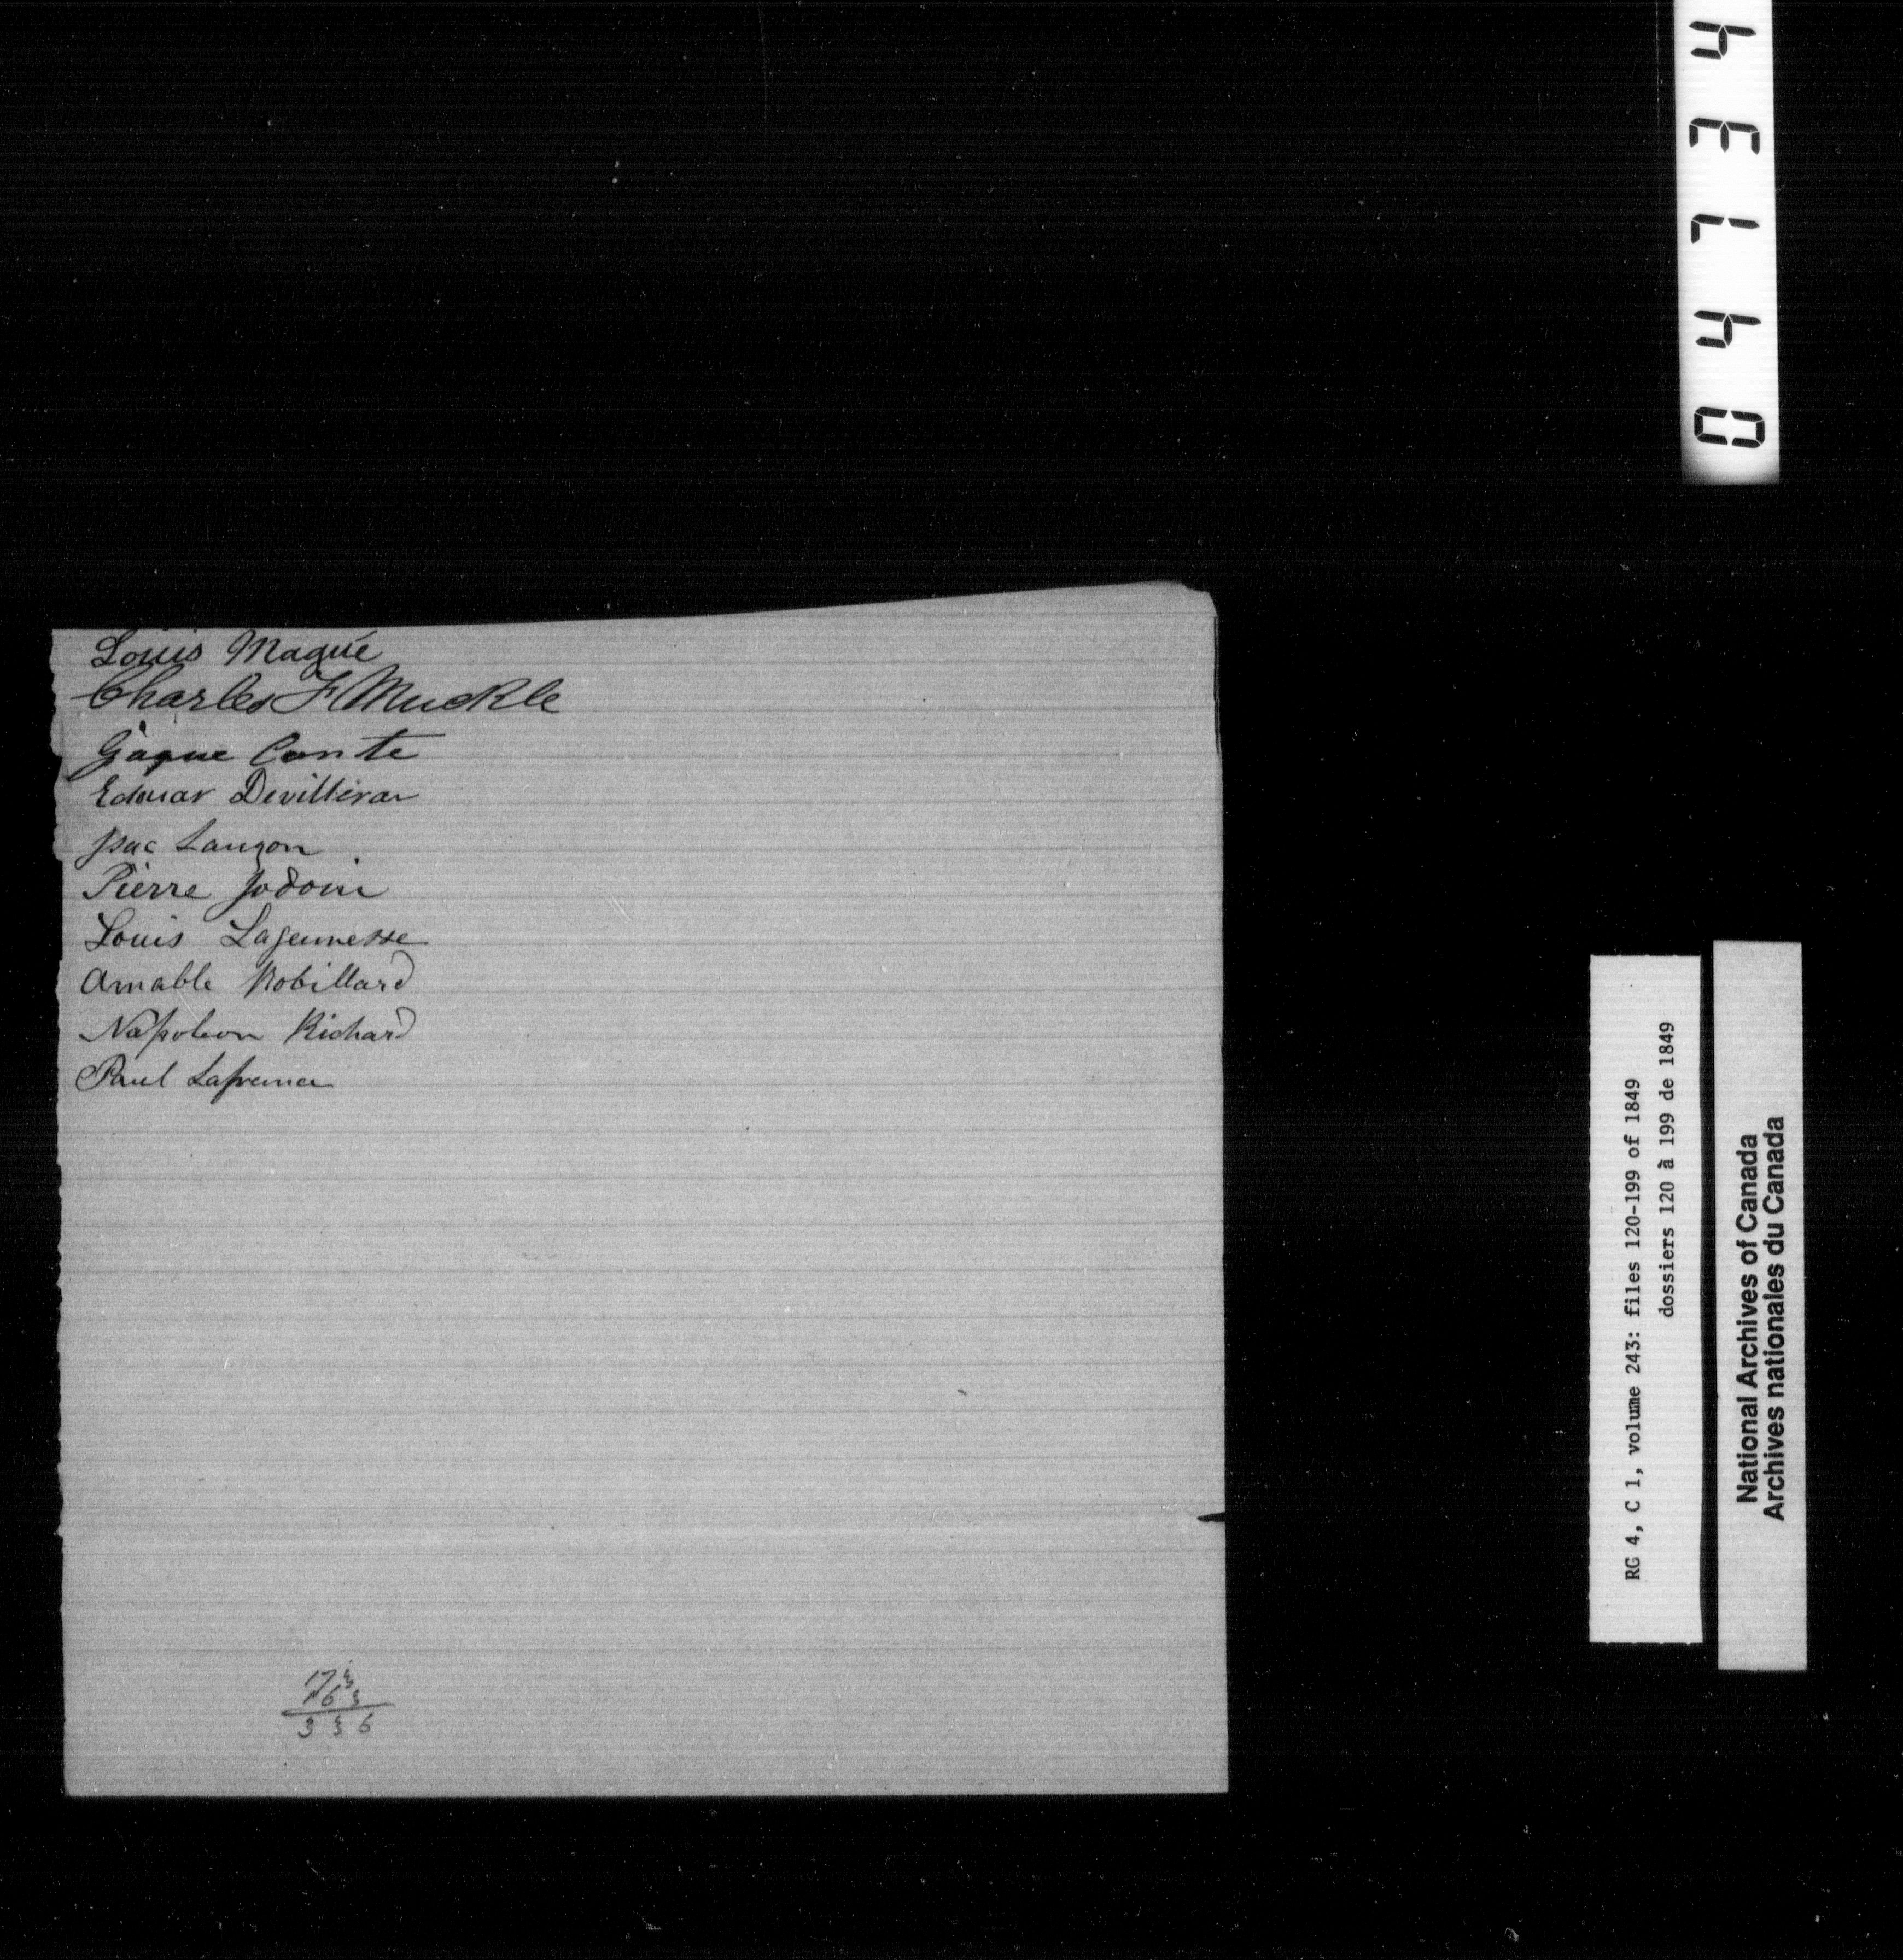 Louis Magué
Charles F Muckle
Gaque Conte
Edouar Devilleran
Isac Lauzon
Pierre Jodoin
Louis Lajeunesse
Amable Robillard
Napoleon Richard
Paul
3 5 6
RG 4, C 1, volume 243: files 120-199 of 1849
dossiers 120 à 199 de 1849
National Archives of Canada
Archives nationales du Canada